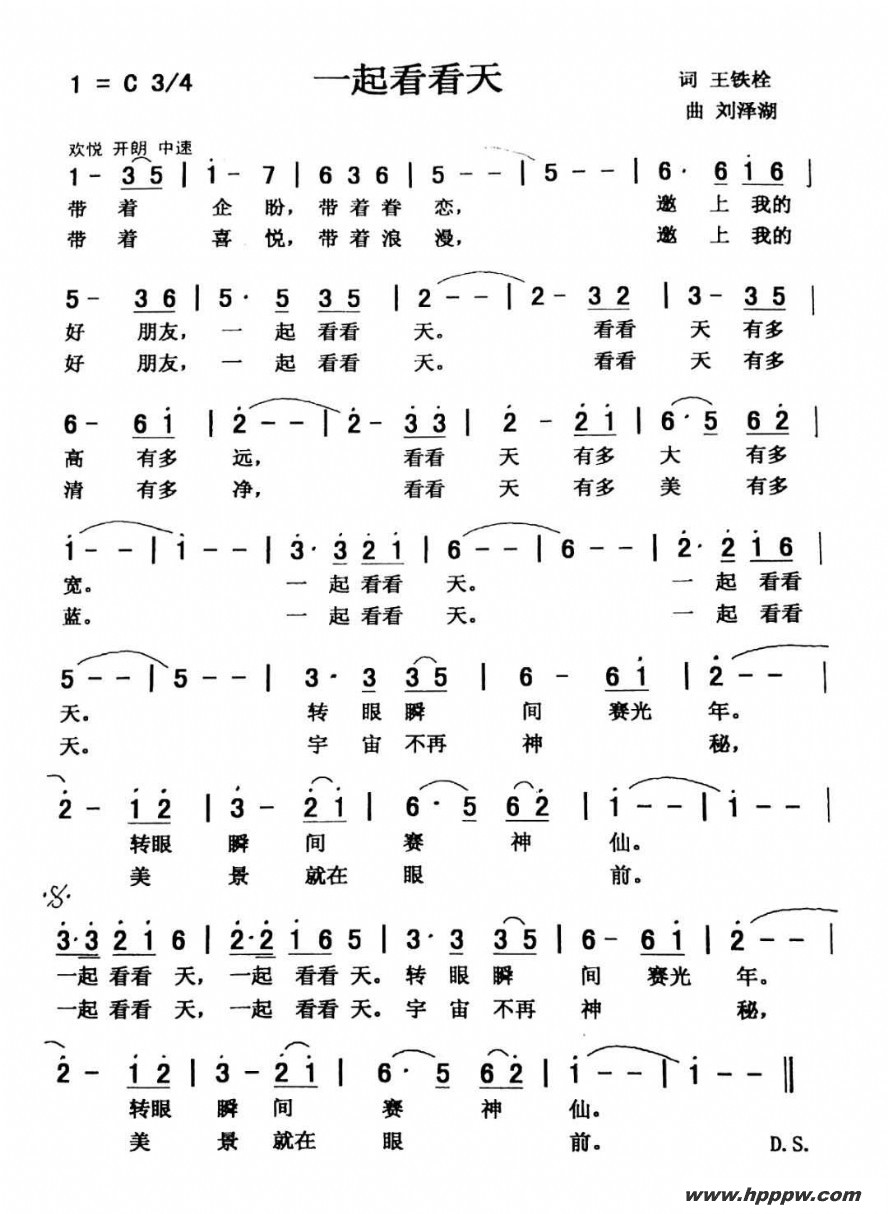 1 = C 3/4 一起看看天 词 王铁栓
曲 刘泽湖
欢悦 开朗 中速
1 - 3 5 | i - 7 | 6 3 6 | 5 - - | 5 - - | 6 · 6 i 6 |
带 着 企 盼, 带 着 眷 恋, 邀 上 我的
带 着 喜 悦, 带 着 浪 漫, 邀 上 我的
5 - 3 6 | 5 · 5 3 5 | 2 - - | 2 - 3 2 | 3 - 3 5 |
好 朋友, 一 起 看看 天。 看看 天 有多
好 朋友, 一 起 看看 天。 看看 天 有多
6 - 6 i | 2̇ - - | 2̇ - 3̇ 3̇ | 2̇ - 2̇ i | 6 · 5 6 2̇ |
高 有多 远, 看看 天 有多 大 有多
清 有多 净, 看看 天 有多 美 有多
i - - | i - - | 3̇ · 3̇ 2̇ i | 6 - - | 6 - - | 2̇ · 2̇ i 6 |
宽。 一 起 看看 天。 一 起 看看
蓝。 一 起 看看 天。 一 起 看看
5 - - | 5 - - | 3 · 3 3 5 | 6 - 6 i | 2̇ - - |
天。 转 眼 瞬 间 赛光 年。
天。 宇 宙 不再 神 秘,
2̇ - i 2̇ | 3̇ - 2̇ i | 6 · 5 6 2̇ | i - - | i - - |
转眼 瞬 间 赛 神 仙。
美 景 就在 眼 前。
3̇ · 3̇ 2̇ i 6 | 2̇ · 2̇ i 6 5 | 3 · 3 3 5 | 6 - 6 i | 2̇ - - |
一起 看看 天, 一起 看看 天。转 眼 瞬 间 赛光 年。
一起 看看 天, 一起 看看 天。宇 宙 不再 神 秘,
2̇ - i 2̇ | 3̇ - 2̇ i | 6 · 5 6 2̇ | i - - | i - - ‖
转眼 瞬 间 赛 神 仙。
美 景 就在 眼 前。 D.S.
www.hpppw.com